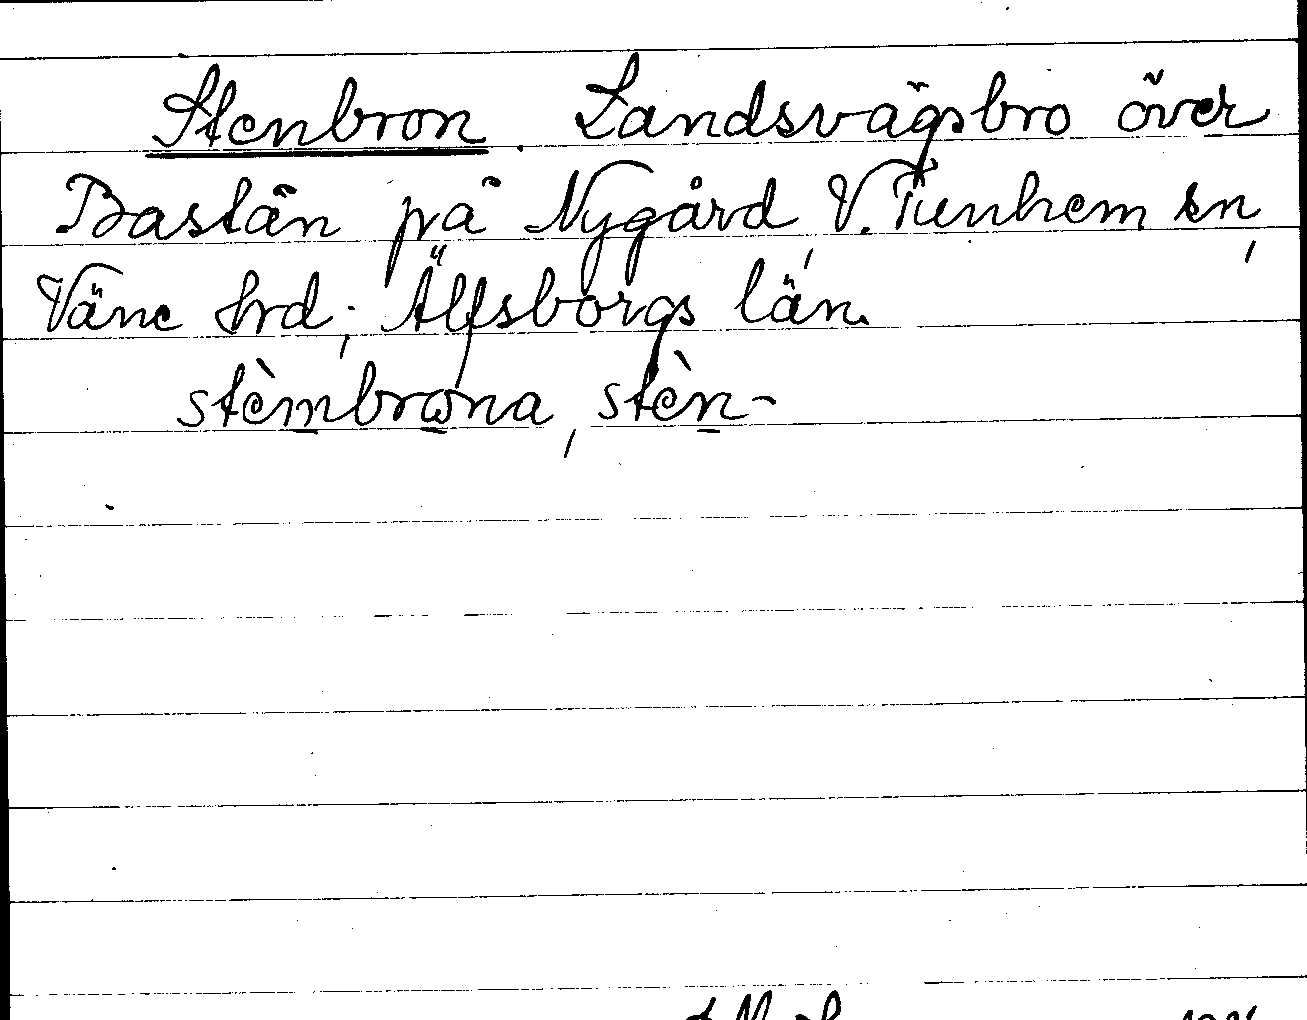 Stenbron. Landsvägsbro över
Bastån på Nygård, V. Tunhem sn,
Väne hrd, Älfsborgs län.
stèmbrona, stèn-